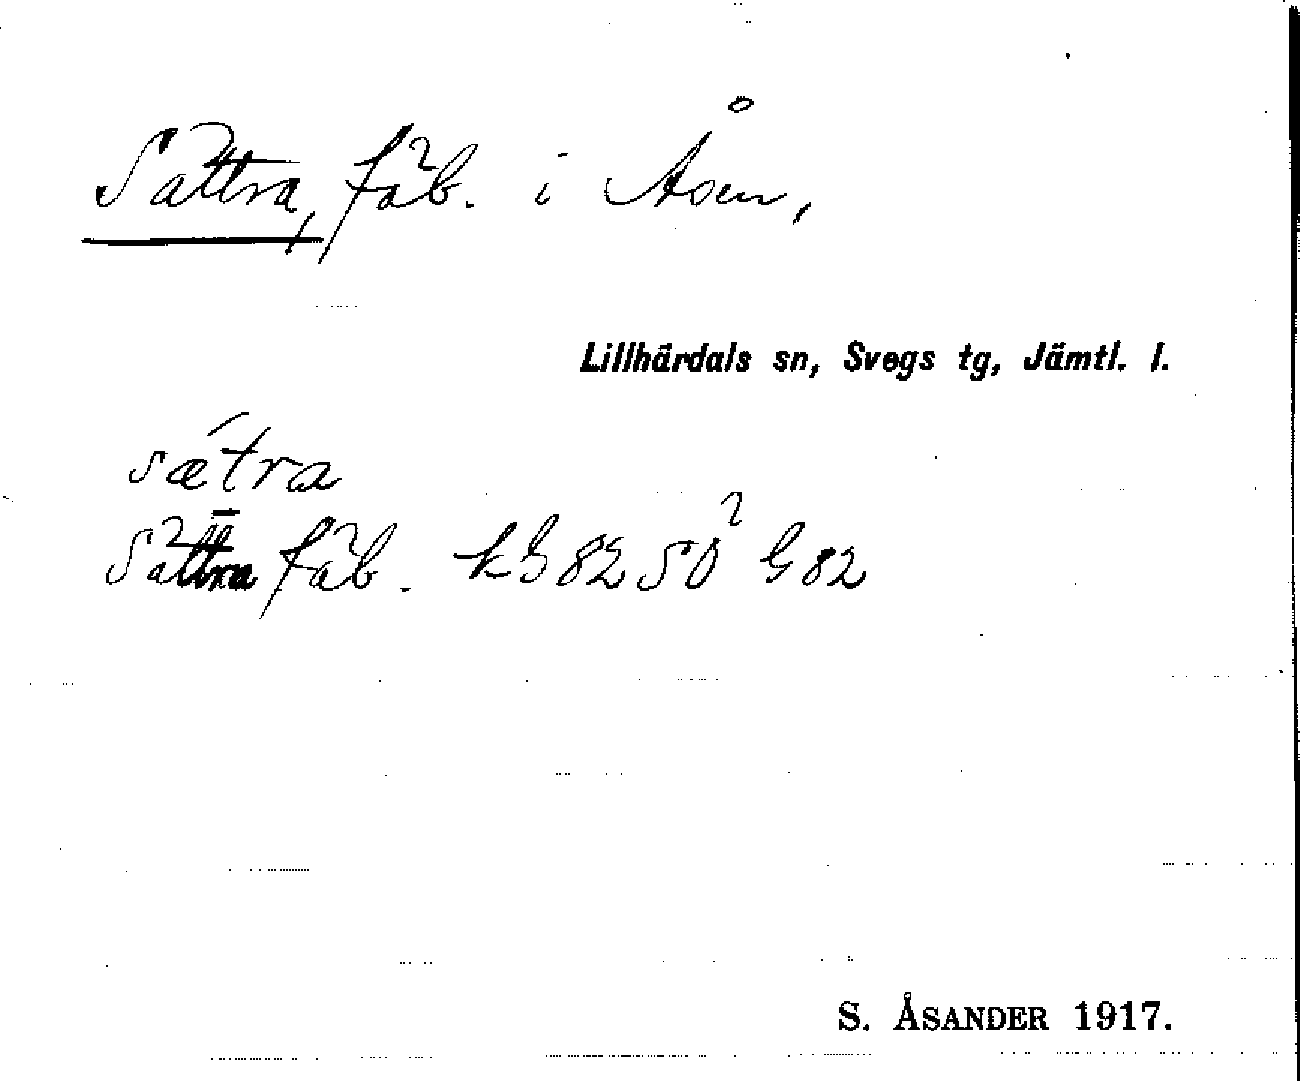 Sättra, fäb. i Åsen,
Lillhärdals sn, Svegs tg, Jämtl. l.
sǽtra
Sättra fäb.
S. ÅSANDER 1917.